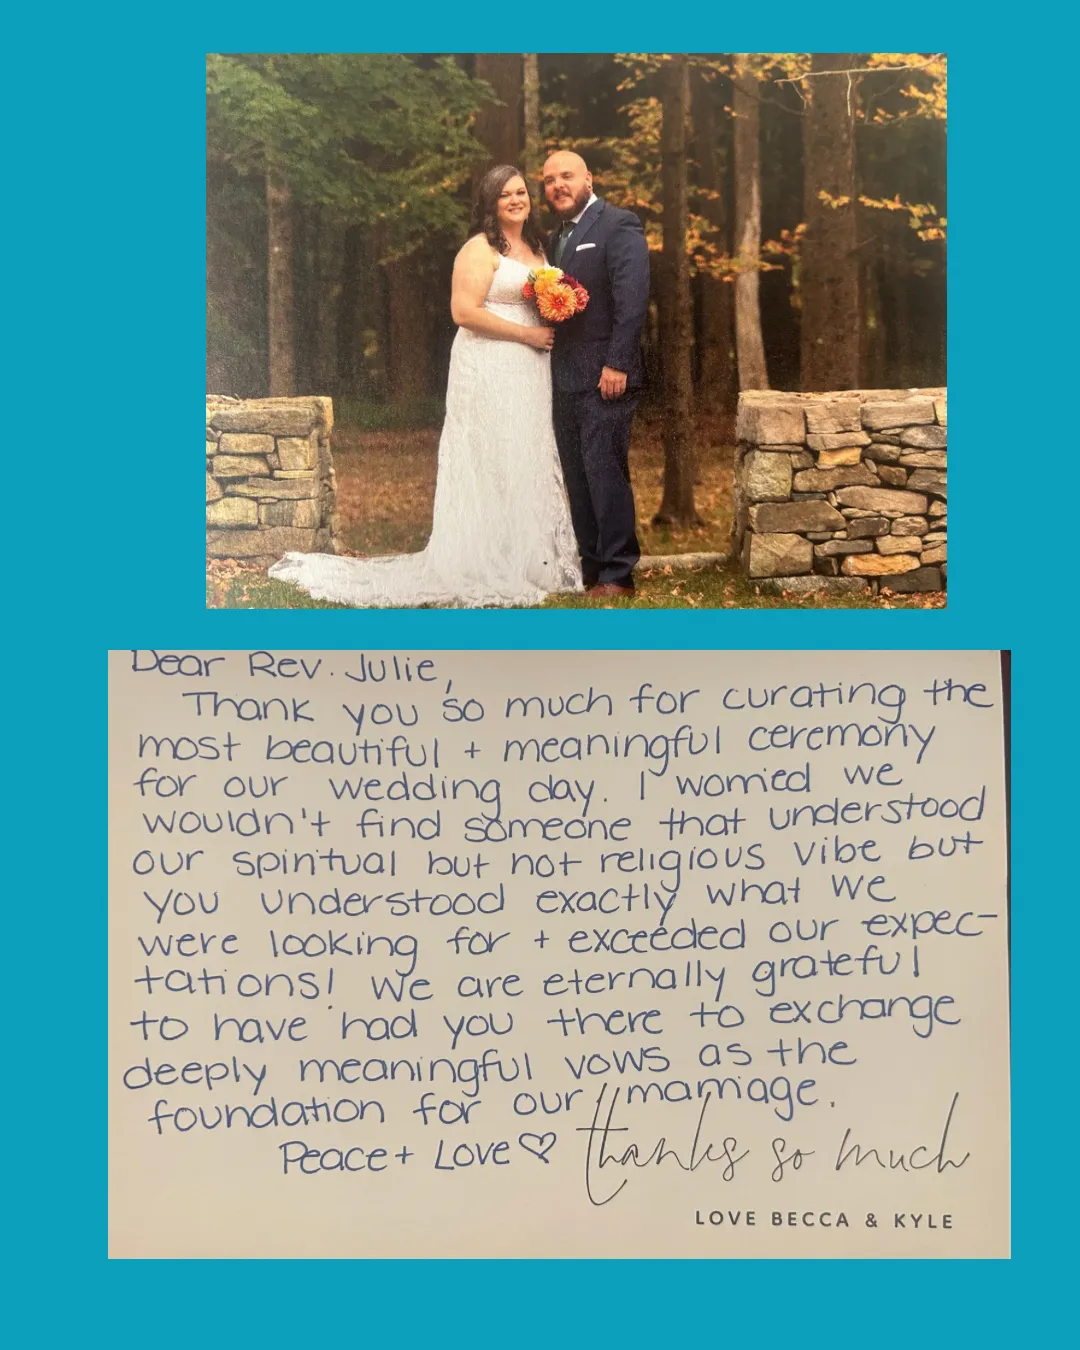 Dear Rev. Julie,
Thank you so much for curating the
most beautiful + meaningful ceremony
for our wedding day. I worried we
wouldn't find someone that understood
our spiritual but not religious vibe but
you understood exactly what we
were looking for + exceeded our expec-
tations! We are eternally grateful
to have had you there to exchange
deeply meaningful vows as the
foundation for our marriage.
Peace + Love ♡
thanks so much
LOVE BECCA & KYLE